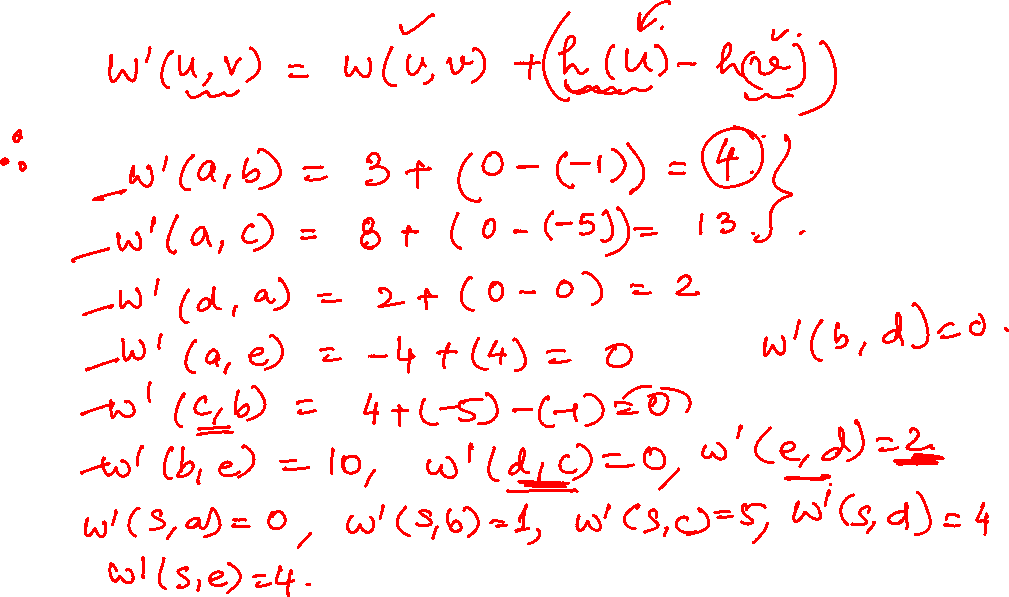 w'(u,v) = w(u,v) + (h(u) - h(v))
∴ w'(a,b) = 3 + (0-(-1)) = 4
w'(a,c) = 8 + (0-(-5)) = 13.
w'(d,a) = 2 + (0-0) = 2
w'(a,e) = -4 + (4) = 0 w'(b,d) = 0.
w'(c,b) = 4+(-5)-(-1) = 0
w'(b,e) = 10, w'(d,c) = 0, w'(e,d) = 2
w'(s,a) = 0, w'(s,b) = 1, w'(s,c) = 5, w'(s,d) = 4
w'(s,e) = 4.